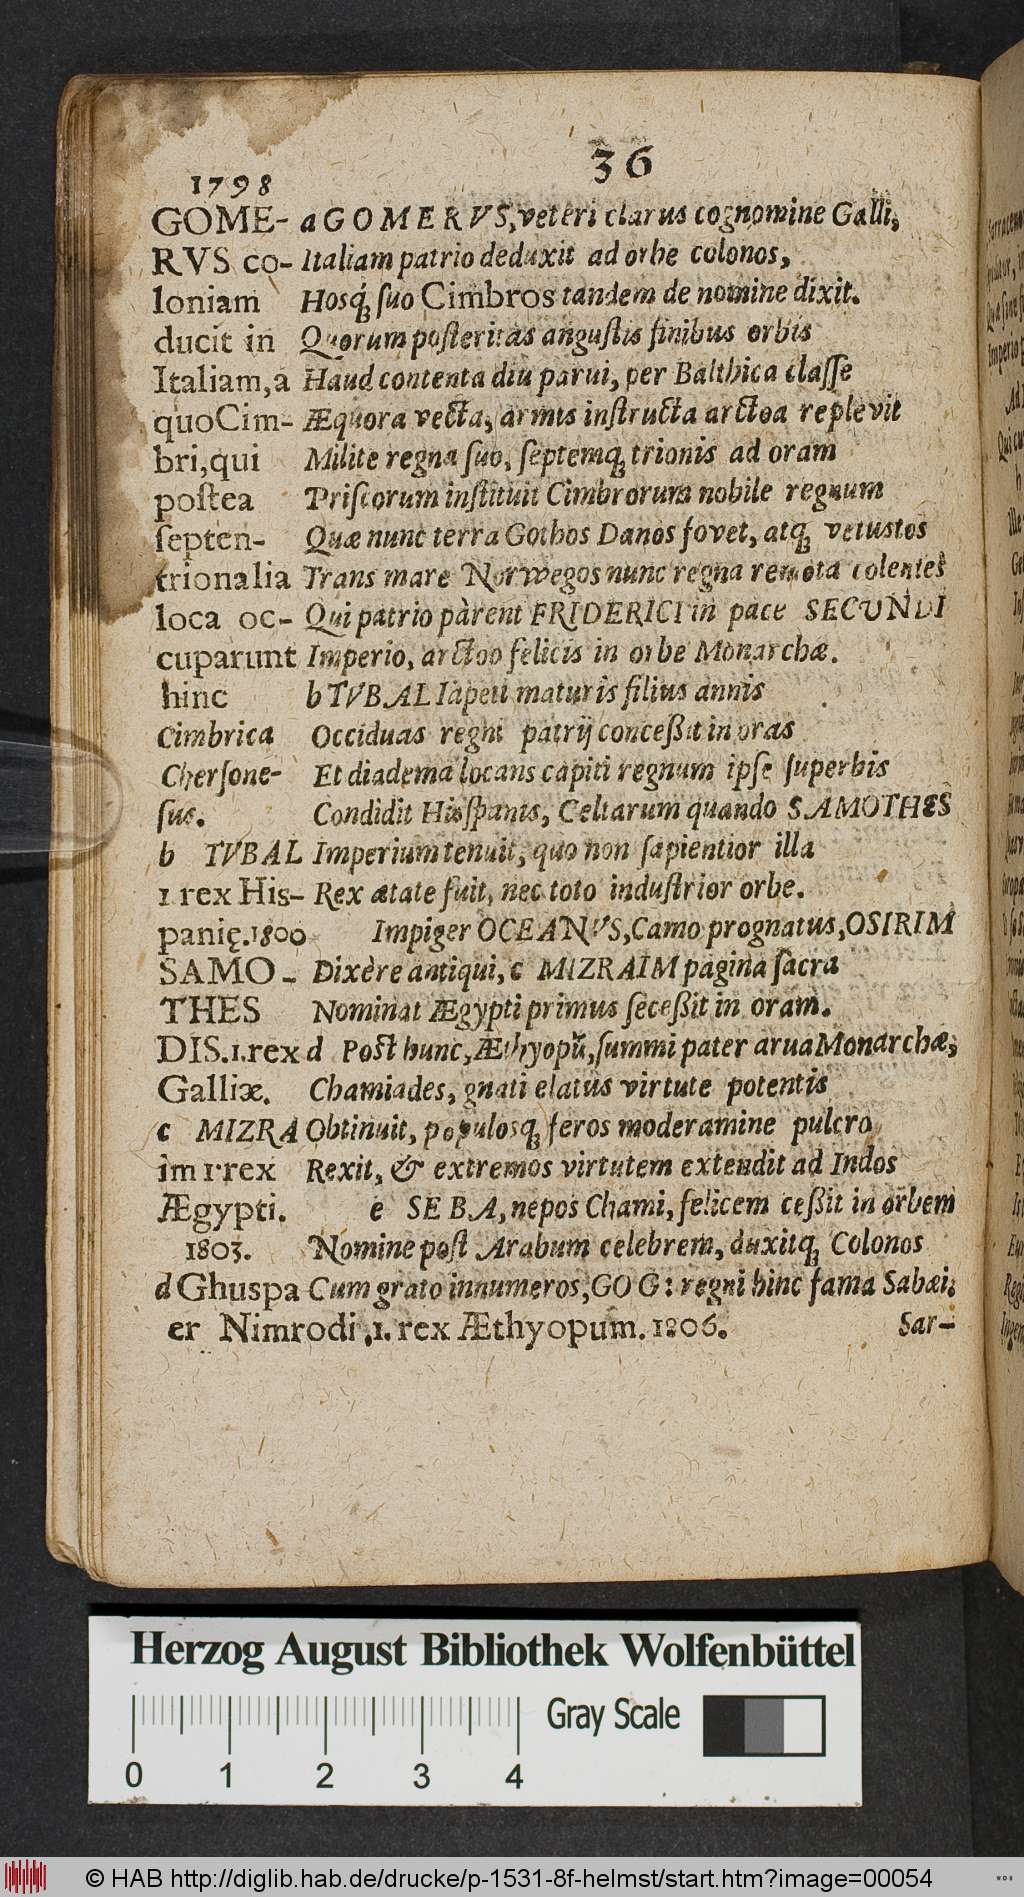 36
1798
GOME-
RVS co-
loniam
ducit in
Italiam, a
quoCim-
bri, qui
poſtea
ſepten-
trionalia
loca oc-
cuparunt
hinc
Cimbrica
Cherſone-
ſus.
b TVBAL
1 rex His-
panię. 1800
SAMO-
THES
DIS. 1. rex
Galliæ.
c MIZRA
im 1 rex
Ægypti.
1803.
d Ghuspa
er Nimrodi, 1. rex Æthyopum. 1806.
a GOMERVS, veteri clarus cognomine Galli,
Italiam patrio deduxit ad orbe colonos,
Hosq́; ſuo Cimbros tandem de nomine dixit.
Quorum poſteritas anguſtis finibus orbis
Haud contenta diu parui, per Balthica claſſe
Æquora vecta, armis inſtructa arctoa replevit
Milite regna ſuo, ſeptemq; trionis ad oram
Priſcorum inſtituit Cimbrorum nobile regnum
Quæ nunc terra Gothos Danos fovet, atq; vetustos
Trans mare Norwegos nunc regna remota colentes
Qui patrio pàrent FRIDERICI in pace SECUNDI
Imperio, arctoo felicis in orbe Monarchæ.
b TVBAL Iapeti maturis filius annis
Occiduas regni patrij conceßit in oras
Et diadema locans capiti regnum ipſe ſuperbis
Condidit Hisſpanis, Celtarum quando SAMOTHES
Imperium tenuit, quo non ſapientior illa
Rex ætate fuit, nec toto induſtrior orbe.
Impiger OCEANVS, Camo prognatus, OSIRIM
Dixère antiqui, c MIZRAIM pagina ſacra
Nominat Ægypti primus ſeceßit in oram.
d Post hunc, Æthyopũ, ſummi pater arua Monarchæ,
Chamiades, gnati elatus virtute potentis
Obtinuit, populosq; feros moderamine pulcro
Rexit, & extremos virtutem extendit ad Indos
e SEBA, nepos Chami, felicem ceßit in orbem
Nomine poſt Arabum celebrem, duxitq; Colonos
Cum grato innumeros, GOG: regni hinc fama Sabæi:
Sar-
Herzog August Bibliothek Wolfenbüttel
Gray Scale
0 1 2 3 4
© HAB http://diglib.hab.de/drucke/p-1531-8f-helmst/start.htm?image=00054